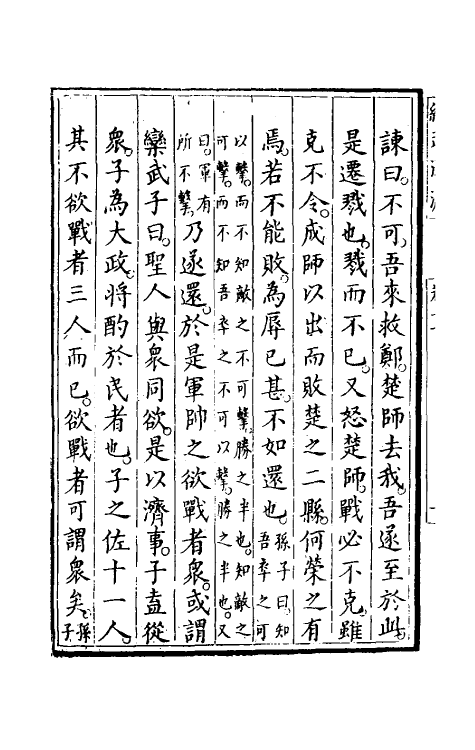 諫曰。不可。吾來救鄭。楚師去我。吾遂至於此。
是遷戮也。戮而不已。又怒楚師。戰必不克。雖
克不令。成師以出而敗楚之二縣。何榮之有
焉。若不能敗。為辱已甚。不如還也。孫子曰。知吾卒之可
以擊。而不知敵之不可擊。勝之半也。知敵之
可擊。而不知吾卒之不可以擊。勝之半也。又
曰。軍有所不擊。乃遂還。於是軍帥之欲戰者衆。或謂
欒武子曰。聖人與衆同欲。是以濟事。子盍從
衆。子為大政。將酌於民者也。子之佐十一人。
其不欲戰者三人而已。欲戰者可謂衆矣。孫子